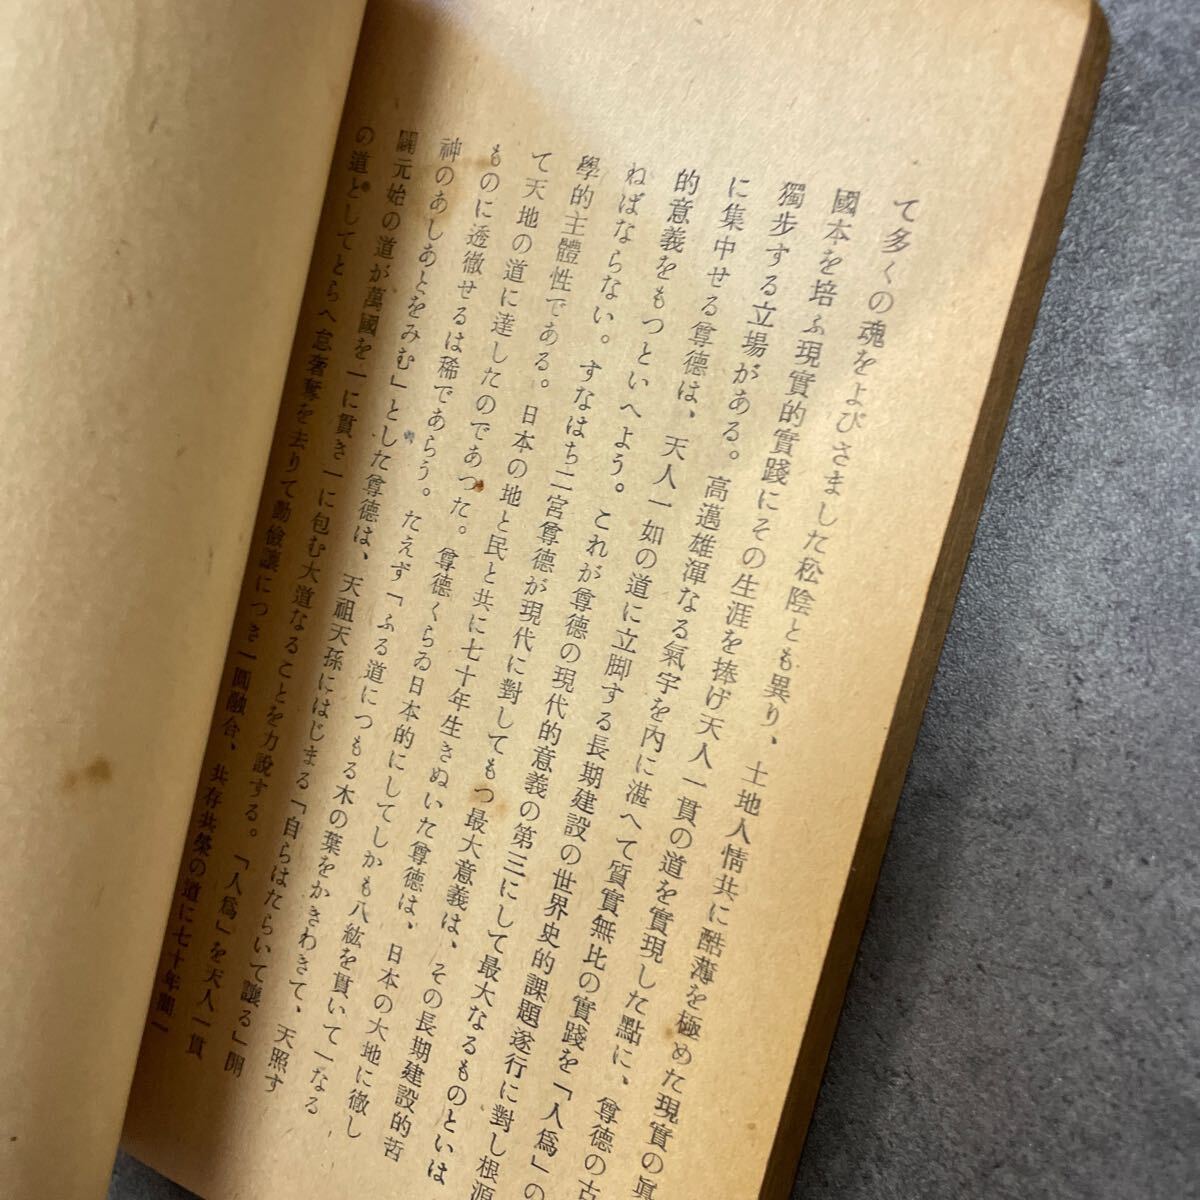 て多くの魂をよびさました松陰とも異り、土地人情共に酷薄を極めた現實の眞
國本を培ふ現實的實踐にその生涯を捧げ天人一貫の道を實現した點に、尊德の古
獨步する立場がある。高邁雄渾なる氣宇を內に湛へて質實無比の實踐を「人爲」の
に集中せる尊德は、天人一如の道に立脚する長期建設の世界史的課題遂行に對し根源
的意義をもつといへよう。これが尊德の現代的意義の第三にして最大なるものといは
ねばならない。すなはち二宮尊德が現代に對してもつ最大意義は、その長期建設的哲
學的主體性である。日本の地と民と共に七十年生きぬいた尊德は、日本の大地に徹し
て天地の道に達したのであつた。尊德くらゐ日本的にしてしかも八紘を貫いて一なる
ものに透徹せるは稀であらう。たえず「ふる道につもる木の葉をかきわきて、天照す
神のあしあとをみむ」とした尊德は、天祖天孫にはじまる「自らはたらいて讓る」開
闢元始の道が萬國を一に貫き一に包む大道なることを力說する。「人爲」を天人一貫
の道としてとらへ怠奢奪を去りて勤儉讓につき一圓融合、共存共榮の道に七十年間一